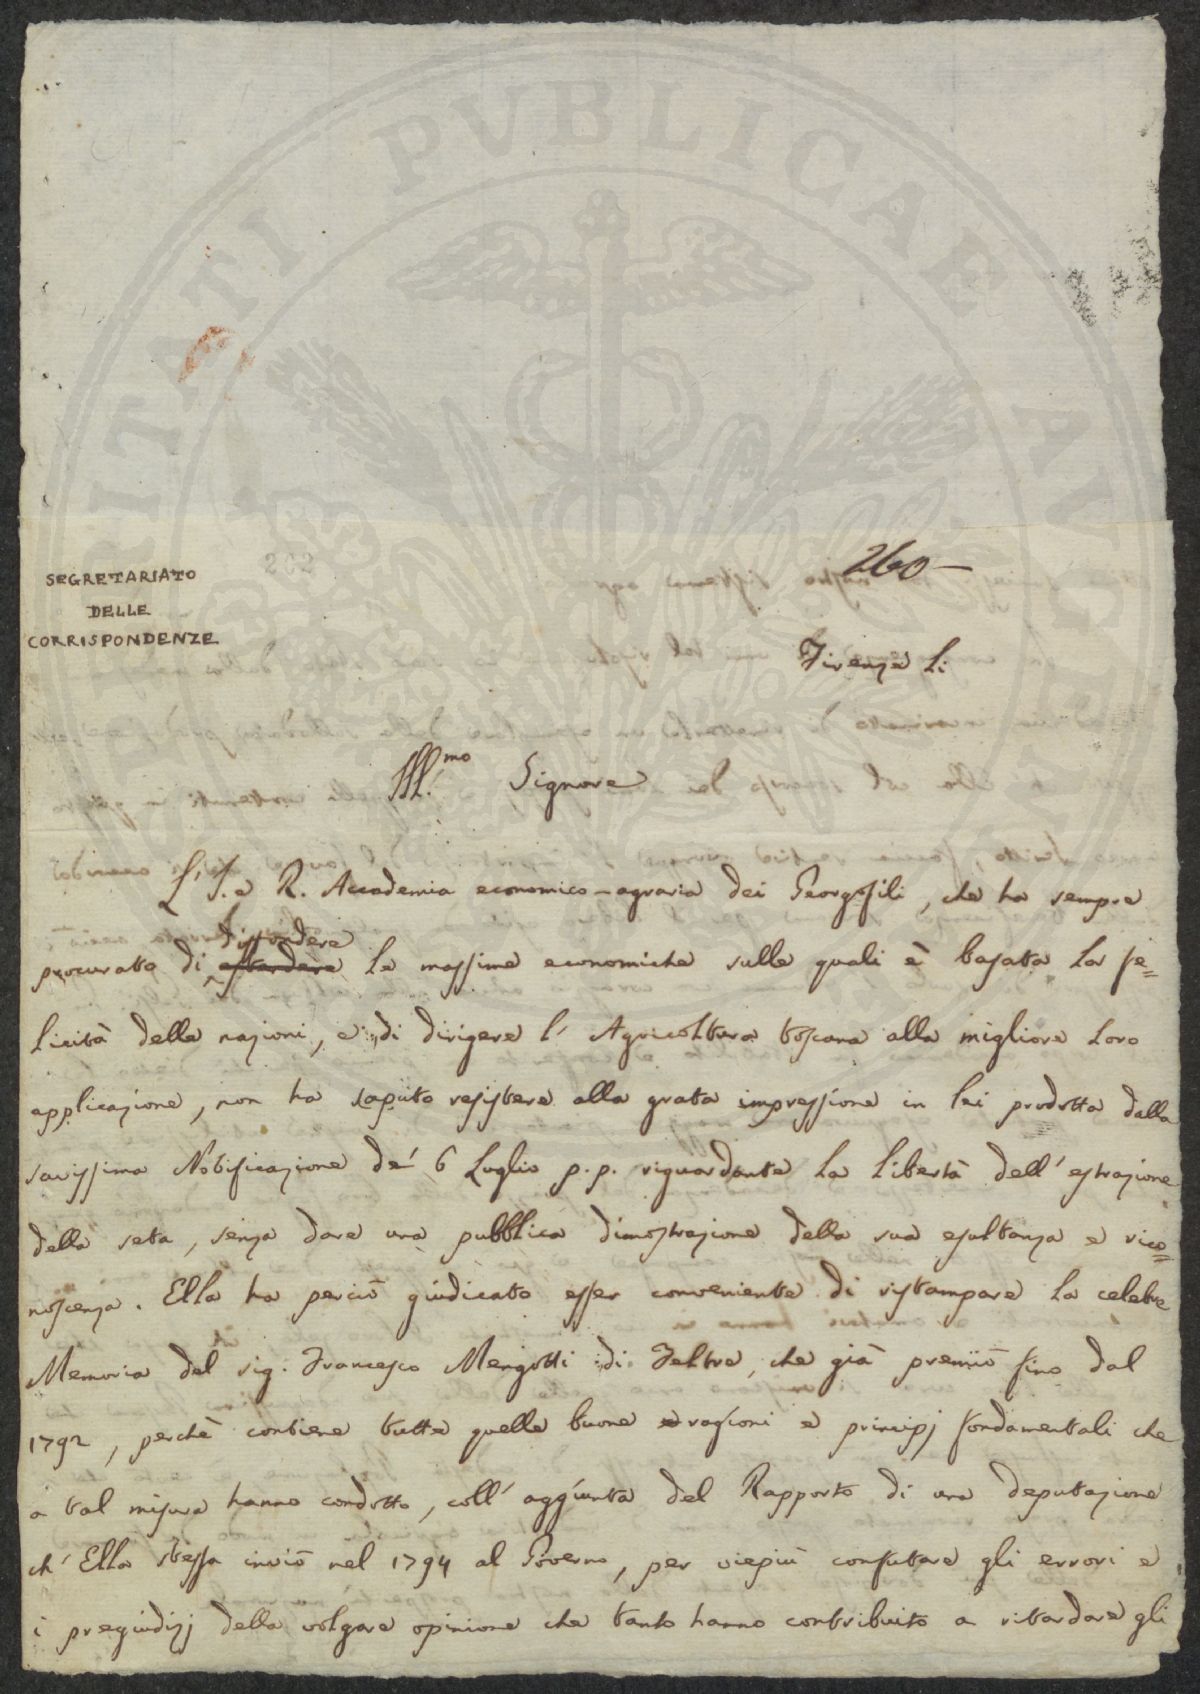 PROSPERITATI PVBLICAE AVGENDAE
202
260
SEGRETARIATO
DELLE
CORRISPONDENZE
Firenze li
Ill.mo Signore
L' I. e R. Accademia economico-agraria dei Georgofili, che ha sempre
diffondere
procurato di estendere le massime economiche sulle quali è basata la fe=
licità delle nazioni, e di dirigere l' Agricoltura toscana alla migliore loro
applicazione, non ha saputo resistere alla grata impressione in lei prodotta dalla
savissima Notificazione de' 6 Luglio p.p. riguardante la libertà dell' estrazione
della seta, senza dare una pubblica dimostrazione della sua esultanza e rico=
noscenza. Ella ha perciò giudicato esser conveniente di ristampare la celebre
Memoria del sig. Francesco Mengotti di Feltre, che già premiò fino dal
1792, perchè contiene tutte quelle buone ragioni e principj fondamentali che
a tal misura hanno condotto, coll' aggiunta del Rapporto di una deputazione
ch' Ella stessa inviò nel 1794 al Governo, per viepiù confutare gli errori e
i pregiudizj della volgare opinione che tanto hanno contribuito a ritardare gli